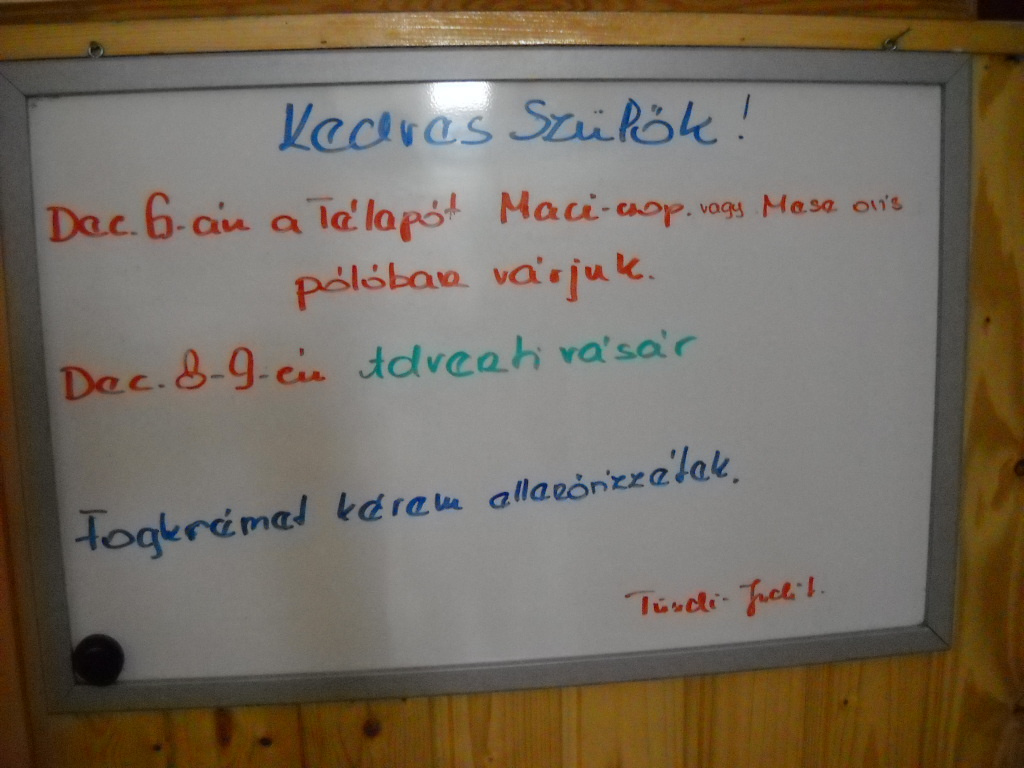 Kedves Szülők!
Dec. 6-án a Télapót Maci-csop. vagy Mese ovis
pólóban várjuk.
Dec. 8-9-én Adventi vásár
Fogkrémet kérem ellenőrizzétek.
Tündi-Judit.